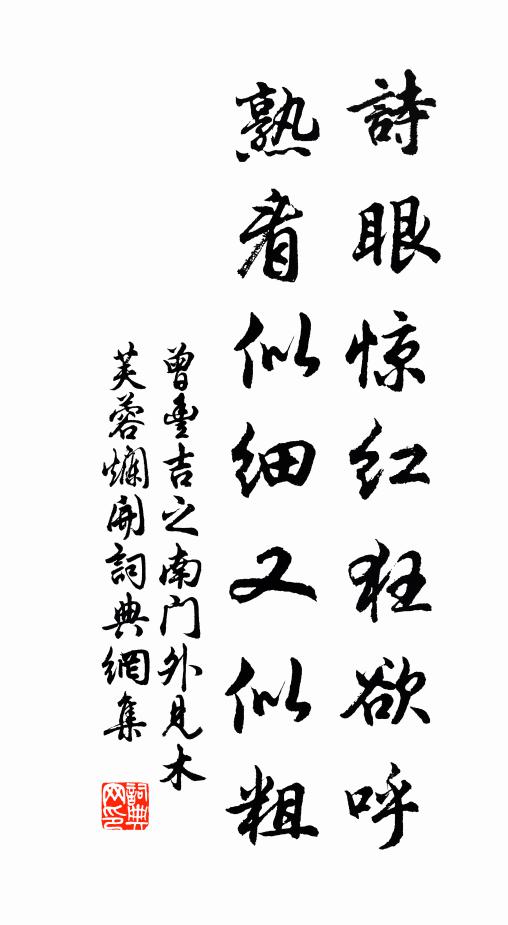 詩眼惊红狂欲呼
熟看似细又似粗
曾豐吉之南门外見木
芙蓉爛開詞典網集
詞典
网印